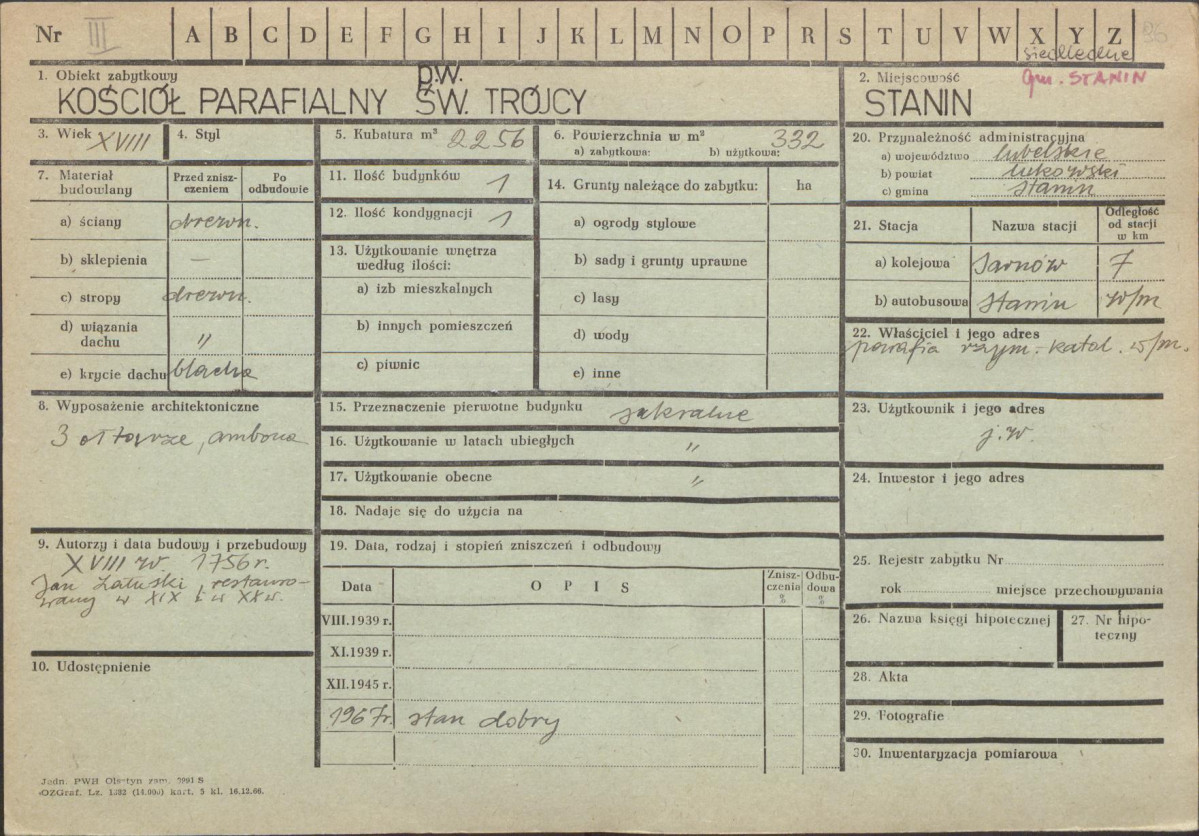 Nr III A B C D E F G H I J K L M N O P R S T U V W X Y Z 96
siedleckie
1. Obiekt zabytkowy
KOŚCIÓŁ PARAFIALNY P.W. ŚW. TRÓJCY
2. Miejscowość
gm. STANIN
STANIN
3. Wiek XVIII
4. Styl
5. Kubatura m³ 2256
6. Powierzchnia w m² 332
a) zabytkowa: b) użytkowa:
7. Materiał budowlany
Przed zniszczeniem
Po odbudowie
a) ściany drewn.
b) sklepienia —
c) stropy drewn.
d) wiązania dachu "
e) krycie dachu blacha
8. Wyposażenie architektoniczne
3 ołtarze, ambona
9. Autorzy i data budowy i przebudowy
XVIII w. 1756 r.
Jan Załuski, restauro-
wany w XIX i w XX w.
10. Udostępnienie
11. Ilość budynków 1
12. Ilość kondygnacji 1
13. Użytkowanie wnętrza
według ilości:
a) izb mieszkalnych
b) innych pomieszczeń
c) piwnic
14. Grunty należące do zabytku: ha
a) ogrody stylowe
b) sady i grunty uprawne
c) lasy
d) wody
e) inne
15. Przeznaczenie pierwotne budynku sakralne
16. Użytkowanie w latach ubiegłych "
17. Użytkowanie obecne "
18. Nadaje się do użycia na
19. Data, rodzaj i stopień zniszczeń i odbudowy
Data OPIS Zniszczenia % Odbudowa %
VIII.1939 r.
XI.1939 r.
XII.1945 r.
1967r. stan dobry
20. Przynależność administracyjna
a) województwo lubelskie
b) powiat łukowski
c) gmina Stanin
21. Stacja Nazwa stacji Odległość od stacji w km
a) kolejowa Sarnów 7
b) autobusowa Stanin w/m
22. Właściciel i jego adres
parafia rzym.-katol. w/m.
23. Użytkownik i jego adres
j.w.
24. Inwestor i jego adres
25. Rejestr zabytku Nr
rok miejsce przechowywania
26. Nazwa księgi hipotecznej
27. Nr hipo-
teczny
28. Akta
29. Fotografie
30. Inwentaryzacja pomiarowa
Jedn. PWH Olsztyn zam. 3991 S
OZGraf. Lz. 1332 (14.000) kart. 5 kl. 16.12.66.